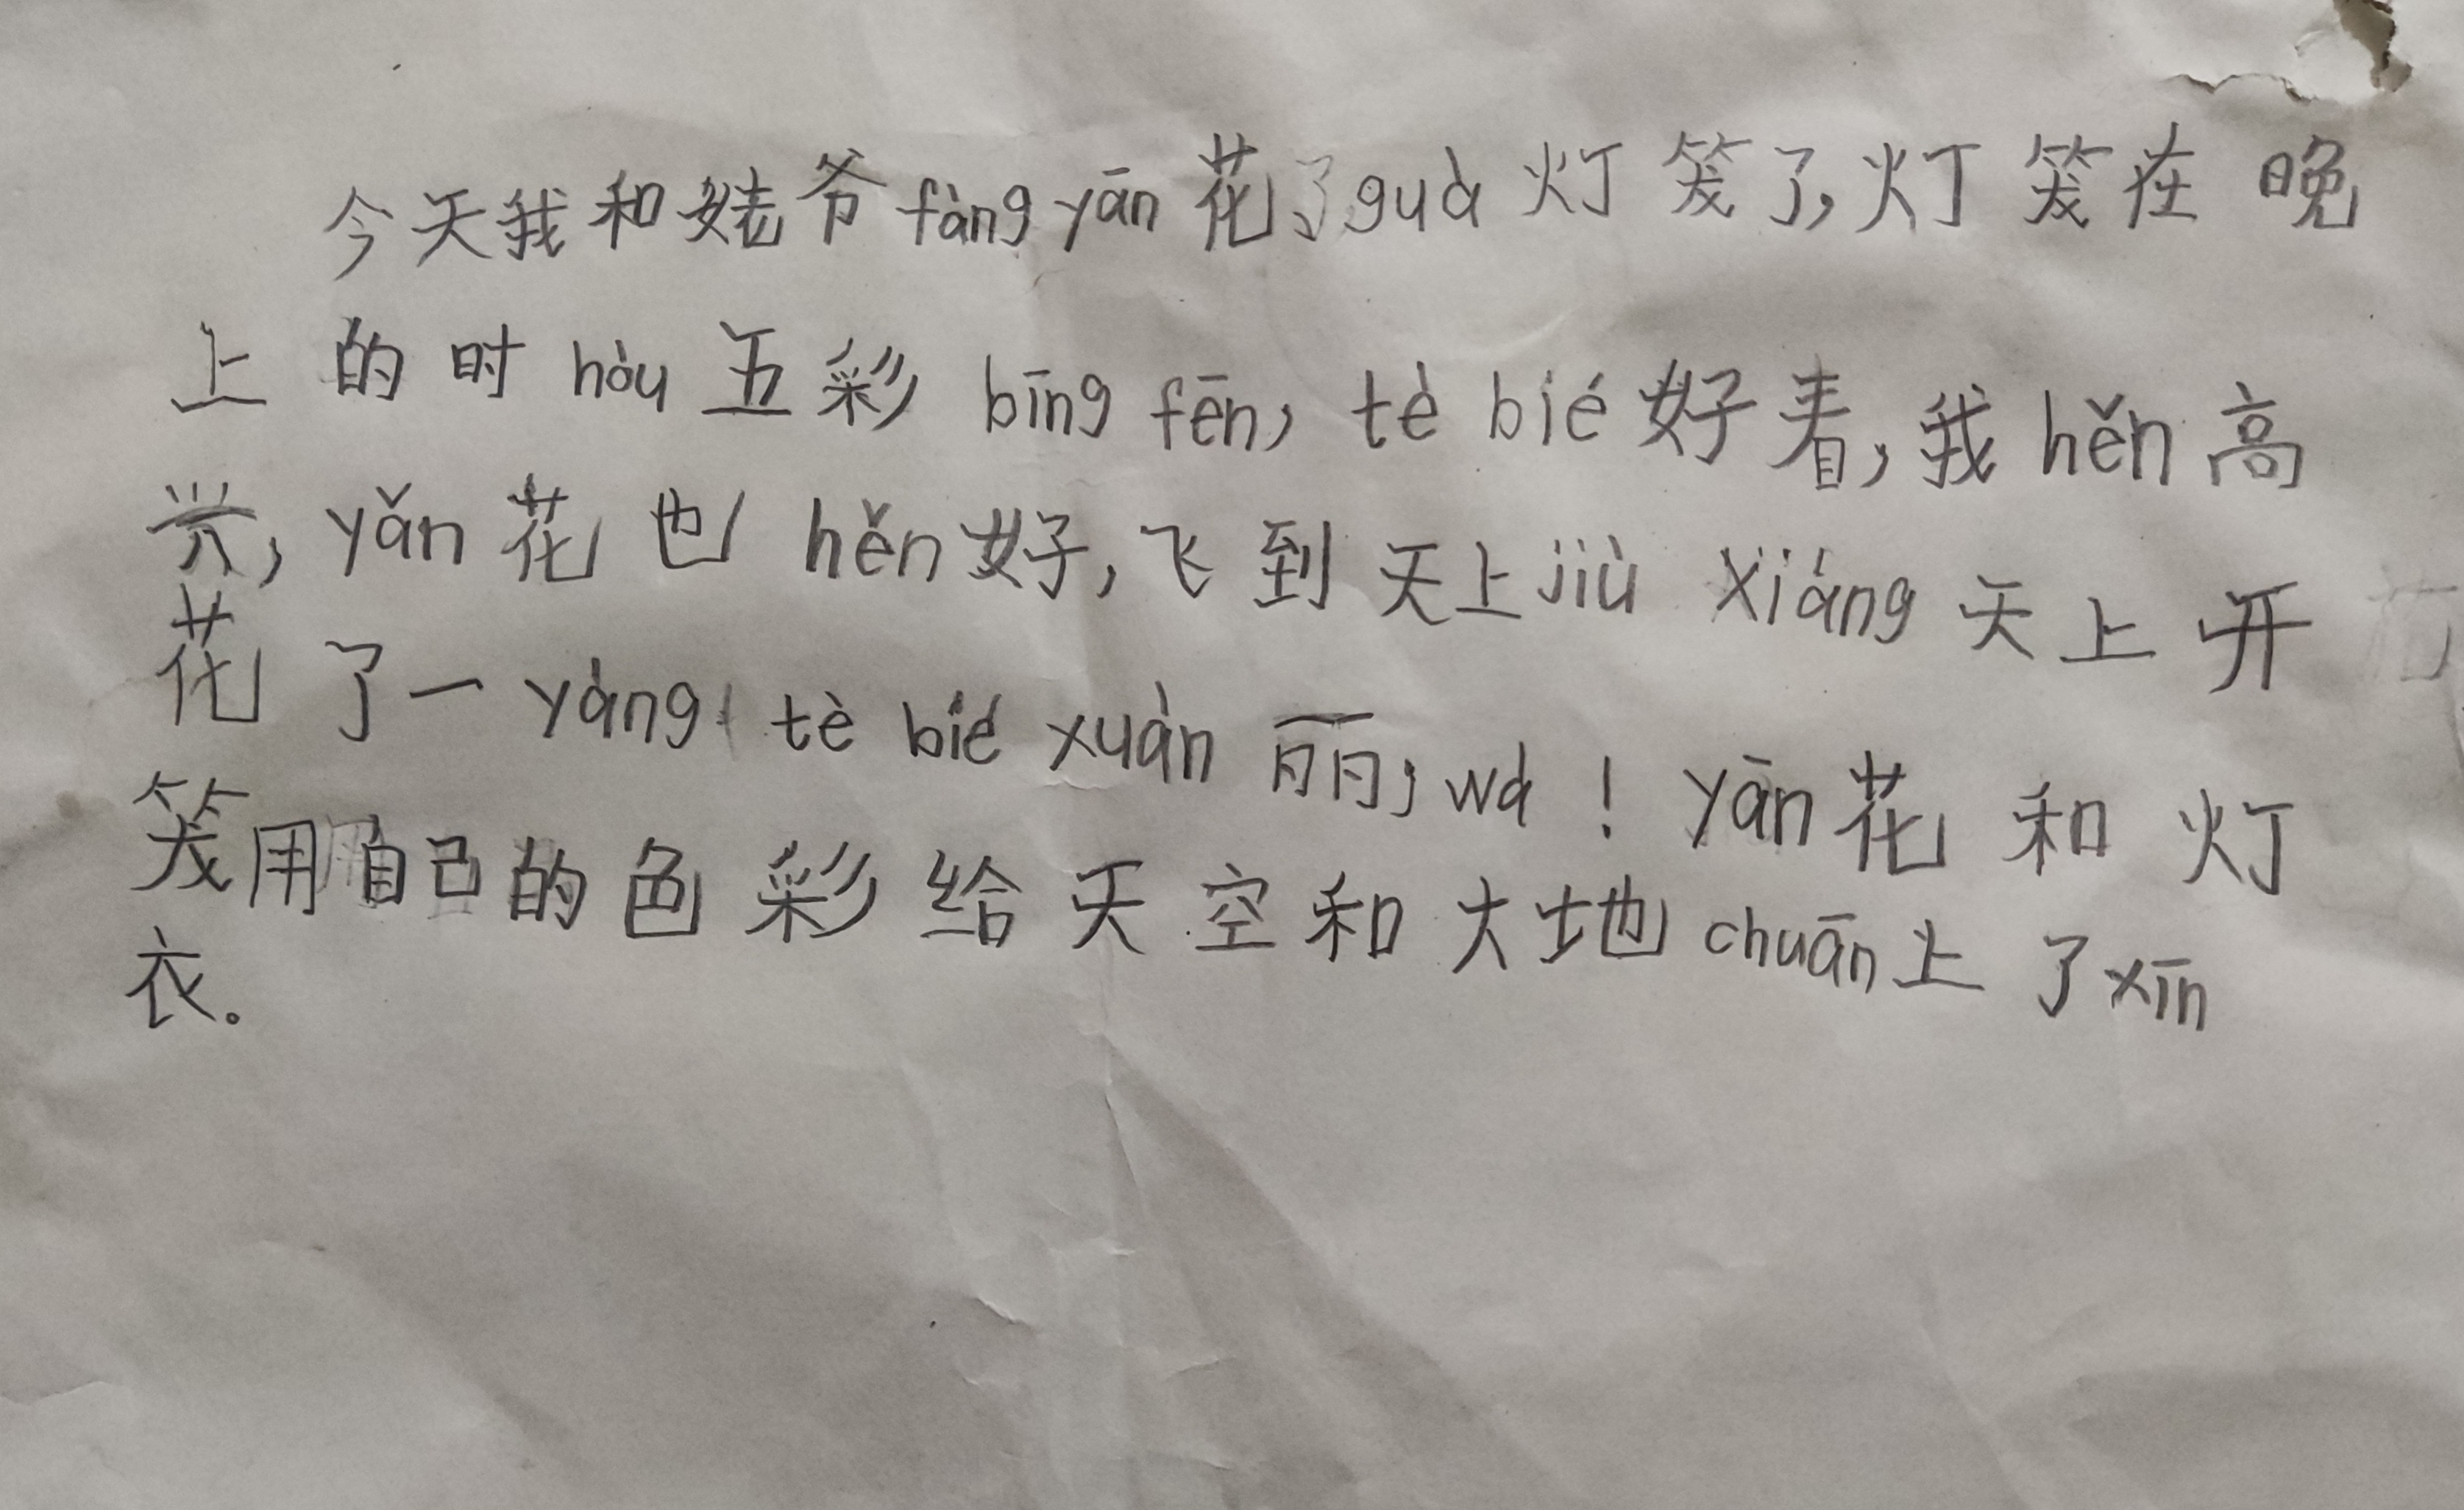 今天我和姥爷fàng yān花了guà灯笼了,灯笼在晚
上的时hòu五彩bīng fēn,tè bié好看,我hěn高
兴,yǎn花也hěn好,飞到天上jiù xiáng天上开
花了一yàng tè bié xuàn丽,wà!yān花和灯
笼用自己的色彩给天空和大地chuān上了xīn
衣。